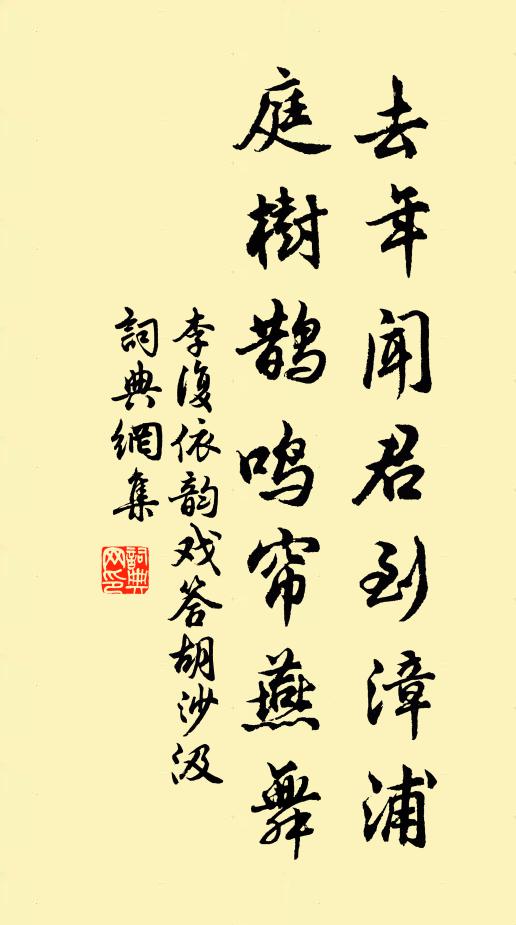 去年闻君到漳浦
庭樹鹊鸣帘燕舞
李復依韵戏答胡沙汲
詞典網集
詞典網印